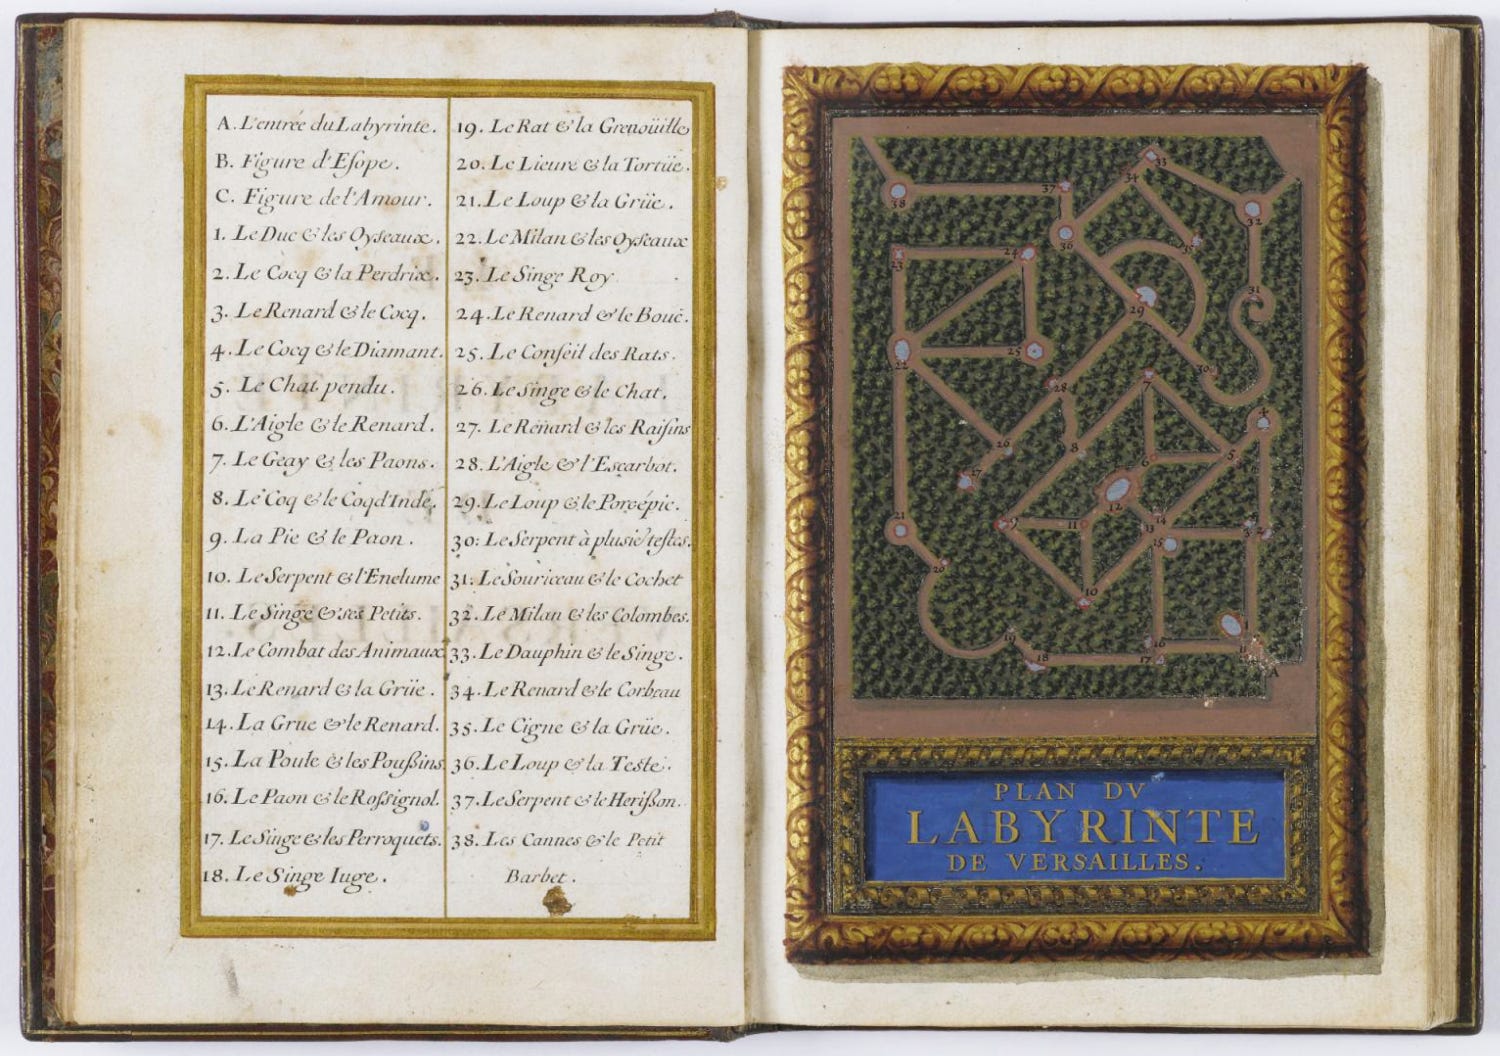 A. L'entrée du Labyrinte.
B. Figure d'Esope.
C. Figure de l'Amour.
1. Le Duc & les Oyseaux.
2. Le Cocq & la Perdrix.
3. Le Renard & le Cocq.
4. Le Cocq & le Diamant.
5. Le Chat pendu.
6. L'Aigle & le Renard.
7. Le Geay & les Paons.
8. Le Coq & le Coq d'Inde.
9. La Pie & le Paon.
10. Le Serpent & l'Enclume
11. Le Singe & ses Petits.
12. Le Combat des Animaux
13. Le Renard & la Grüe.
14. La Grue & le Renard.
15. La Poule & les Poußins
16. Le Paon & le Rossignol.
17. Le Singe & les Perroquets.
18. Le Singe Iuge.
19. Le Rat & la Grenoüille
20. Le Lieure & la Tortüe.
21. Le Loup & la Grüe.
22. Le Milan & les Oyseaux
23. Le Singe Roy
24. Le Renard & le Bouc.
25. Le Conseil des Rats.
26. Le Singe & le Chat.
27. Le Renard & les Raisins
28. L'Aigle & l'Escarbot.
29. Le Loup & le Porcépic.
30: Le Serpent à plusie.rs testes.
31. Le Souriceau & le Cochet
32. Le Milan & les Colombes.
33. Le Dauphin & le Singe.
34. Le Renard & le Corbeau
35. Le Cigne & la Grüe.
36. Le Loup & la Teste.
37. Le Serpent & le Herißon.
38. Les Cannes & le Petit
Barbet.
33
34
37
38
32
35
36
24
23
31
29
25
22
30
28
7
4
26
8
5
27
6
12
14
9
11
13
3
2
21
15
20
10
19
16
18
17
1
A
PLAN DV
LABYRINTE
DE VERSAILLES.